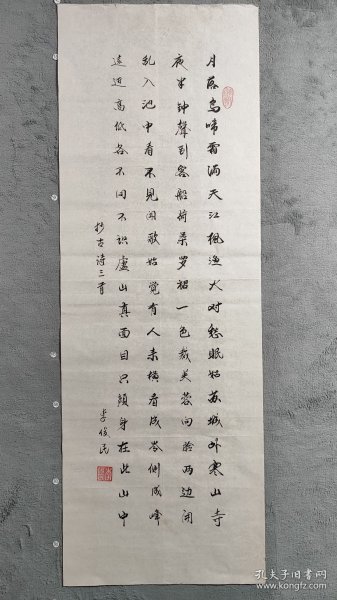 月落乌啼霜满天江枫渔火对愁眠姑苏城外寒山寺
夜半钟聲到客船荷葉罗裙一色裁芙蓉向脸两边開
乱入池中看不见闻歌始觉有人来横看成岭侧成峰
远近高低各不同不识庐山真面目只緣身在此山中
抄古诗三首
李俊民
孔夫子旧书网
kongfz.com